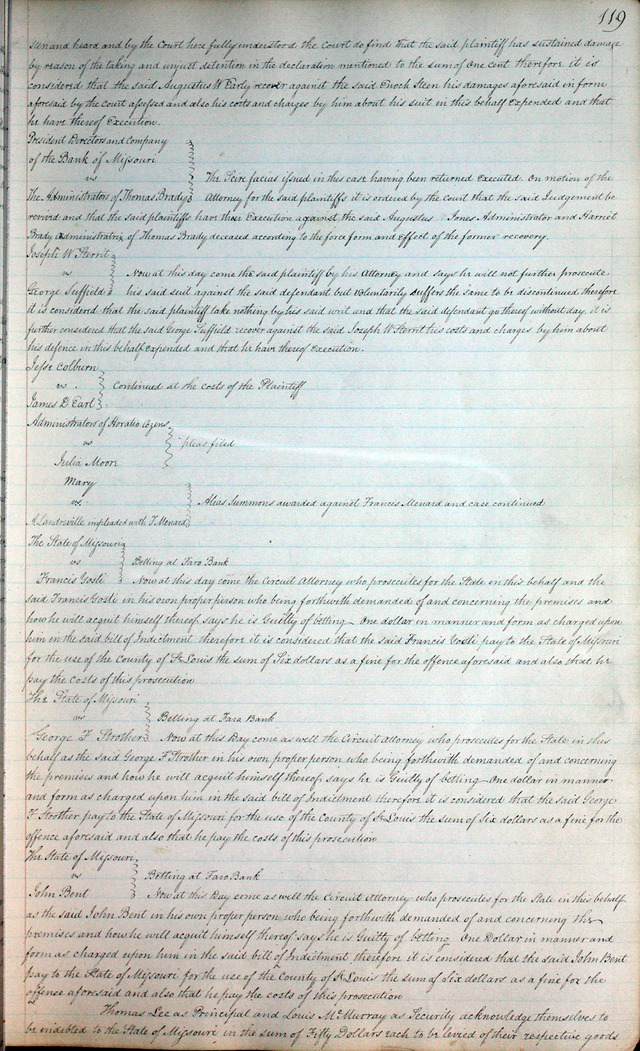 119
seen and heard and by the Court here fully understood the court do find that the said plaintiff has sustained damage
by reason of the taking and unjust detention in the declaration mentioned to the sum of One cent therefore it is
considered that the said Augustus W Early recover against the said Enoch Steen his damages aforesaid in form
aforesaid by the court assessed and also his costs and charges by him about his suit in this behalf Expended and that
he have thereof Execution.
President Directors and Company
of the Bank of Missouri
vs
The Scire facias issued in this case having been returned Executed On motion of the
The Administrators of Thomas Brady Attorney for the said plaintiffs it is ordered by the court that the said Judgement be
revived and that the said plaintiffs have their Execution against the said Augustus Jones Administrator and Harriet
Brady Administratrix of Thomas Brady deceased according to the force form and effect of the former recovery.
Joseph W Sternit
vs Now at this day come the said plaintiff by his Attorney and says he will not further prosecute
George Tuffield his said suit against the said defendant but voluntarily suffers the same to be discontinued therefore
it is considered that the said plaintiff take nothing by his said writ and that the said defendant go thereof without day. it is
further considered that the said George Tuffield recover against the said Joseph W Sternit his costs and charges by him about
his defence in this behalf expended and that he have thereof Execution.
Jesse Colburn
vs. Continued at the costs of the Plaintiff
James D Earl
Administrators of Horatio Cozens
vs pleas filed
Julia Moore
Mary
vs. Alias Summons awarded against Francis Menard and case continued
A Landreville impleaded with F. Menard
The State of Missouri
vs Betting at Faro Bank
Francis Yosti Now at this day come the Circuit Attorney who prosecutes for the State in this behalf and the
said Francis Yosti in his own proper person who being forthwith demanded of and concerning the premises and
how he will acquit himself thereof says he is Guilty of betting One dollar in manner and form as charged upon
him in the said bill of Indictment therefore it is considered that the said Francis Yosti pay to the State of Missouri
for the use of the County of St Louis the sum of Six dollars as a fine for the offence aforesaid and also that he
pay the costs of this prosecution
The State of Missouri
vs Betting at Fara Bank
George F Strother Now at this Day come as well the Circuit Attorney who prosecutes for the State in this
behalf as the said George F Strother in his own proper person who being forthwith demanded of and concerning
the premises and how he will acquit himself thereof, says he is Guilty of betting One dollar in manner
and form as charged upon him in the said bill of Indictment therefore it is considered that the said George
F Strother pay to the State of Missouri for the use of the County of St Louis the sum of Six dollars as a fine for the
offence aforesaid and also that he pay the costs of this prosecution
The State of Missouri
vs Betting at Faro Bank
John Bent Now at this Day come as well the Circuit Attorney who prosecutes for the State in this behalf
as the said John Bent in his own proper person who being forthwith demanded of and concerning the
premises and how he will acquit himself thereof says he is Guilty of betting One Dollar in manner and
form as charged upon him in the said bill of Indictment therefore it is considered that the said John Bent
pay to the State of Missouri for the use of the County of St Louis the sum of Six dollars as a fine for the
offence aforesaid and also that he pay the costs of this prosecution
Thomas Lee as Principal and Louis McMurray as Security acknowledge themselves to
be indebted to the State of Missouri in the sum of Fifty Dollars each to be levied of their respective goods